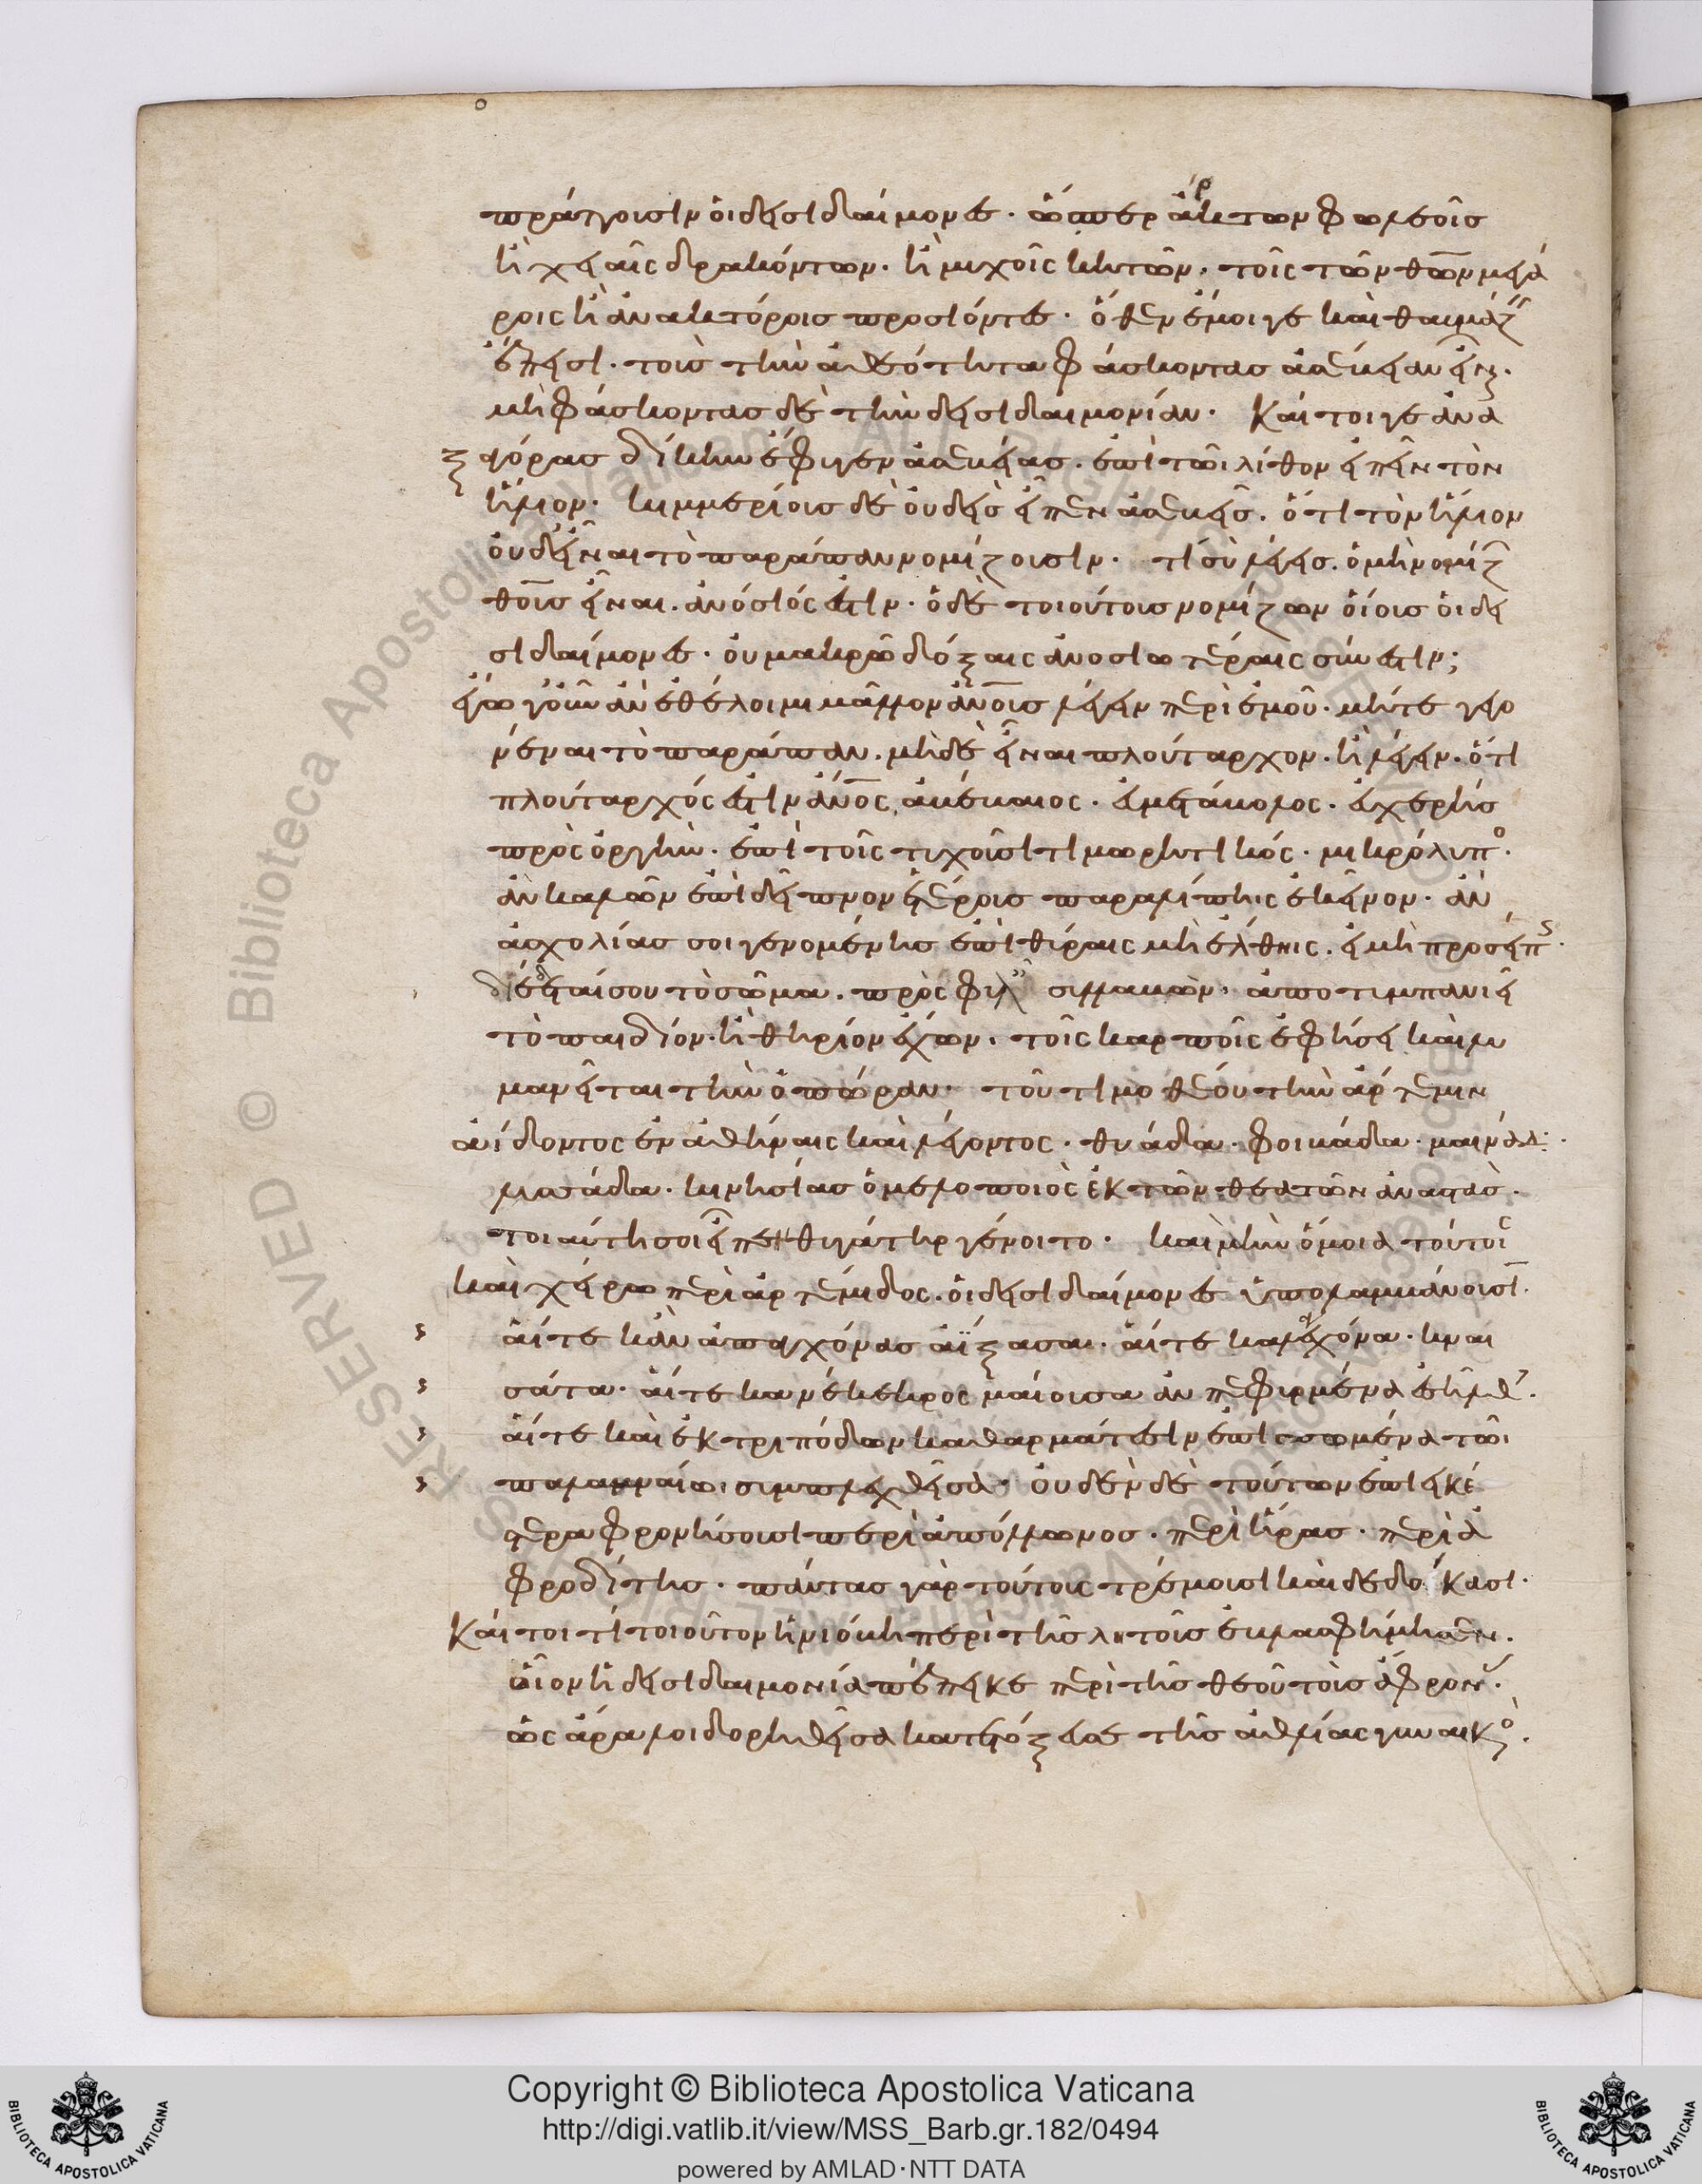 πράττουσιν οἱ δεισιδαίμονες. ὥσπερ ἄρκτων φωλεοῖς
ἢ χειαῖς δρακόντων. ἢ μυχοῖς κητῶν. τοῖς τῶν θεῶν μεγά
ροις ἢ ἀνακτόροις προσιόντες. ὅθεν ἔμοιγε καὶ θαυμάζειν
ἔπεισι. τοὺς τὴν ἀθεότητα φάσκοντας ἀσέβειαν εἶναι.
μὴ φάσκοντας δὲ τὴν δεισιδαιμονίαν. Καίτοιγε ἀνα
ξαγόρας δίκην ἔφυγεν ἀσεβείας. ἐπὶ τῶι λίθον εἰπεῖν τὸν
ἥλιον. κιμμερίους δὲ οὐδεὶς εἶπεν ἀσεβεῖς. ὅτι τὸν ἥλιον
οὐδεῖναι τὸ παράπαν νομίζουσιν. τί σὺ λέγεις. ὁ μὴ νομίζων
θεοὺς εἶναι. ἀνόσιός ἐστιν. ὁ δὲ τοιούτους νομίζων οἵους οἱ δει
σιδαίμονες. οὐ μακρῶ δόξαις ἀνοσιωτέραις σύνεστιν;
ἐγὼ γοῦν ἂν ἐθέλοιμι μᾶλλον ἀνθρώπους λέγειν περὶ ἐμοῦ. μήτε γεγο
νέναι τὸ παράπαν. μηδὲ εἶναι πλούταρχον. ἢ λέγειν. ὅτι
πλούταρχός ἐστιν ἄνθρωπος ἀβέβαιος. εὐμετάβολος. εὐχερὴς
πρὸς ὀργὴν. ἐπὶ τοῖς τυχοῦσι τιμωρητικός. μικρόλυπος.
ἂν καλῶν ἐπὶ δεῖπνον ἑτέρους παραλίπηις ἐκεῖνον. ἂν
ἀσχολίας σοι γενομένης ἐπὶ θύραις μὴ ἔλθηις. ἢ μὴ προσείπηις.
διέδεταί σου τὸ σῶμα. συλλαβὼν. ἀποτυμπανιεῖ
τὸ παιδίον. ἢ θηρίον ἔχων. τοῖς καρποῖς ἐφήσει καὶ λυ
μανεῖται τὴν ὀπώραν. τοῦ τιμοθέου τὴν ἄρτεμιν
ἀίδοντος ἐν ἀθήναις καὶ λέγοντος. θυάδα. φοιβάδα. μαινάδα.
λυσσάδα. κινησίας ὁ μελοποιὸς ἐκ τῶν θεατῶν ἀναστὰς.
τοιαύτη σοι εἶπε θυγάτηρ γένοιτο. καὶ μὴν ὅμοια τούτοις
καὶ χείρω περὶ ἀρτέμιδος. οἱ δεισιδαίμονες ὑπολαμβάνουσιν.
αἴτε κἂν ἀπαγχόνας ἀΐξασα. αἴτε καλεχόνα. κναί
σατα. αἴτε κανέκεκρος μαίουσα ἂν πεφυρμένα
αἴτε καὶ ἐκ τριπόδων καθαρμάτεσιν ἐπισπωμένα τῶι
παλαμναίωι συμπλεχθεῖσα. οὐδὲν δὲ τούτων ἐπιεικέ
στερα φρονήσουσι περὶ ἀπόλλωνος. περὶ ἥρας. περὶ ἀ
φροδίτης. πάντας γὰρ τούτους τρέμουσι καὶ δεδοίκασι.
Καίτοι τί τοιοῦτον ἡ νιόβη περὶ τῆς λητοῦς ἐβλασφήμησεν.
οἷον ἡ δεισιδαιμονία πέπεικε περὶ τῆς θεοῦ τοὺς ἄφρονας.
ὡς ἄρα λοιδορηθεῖσα κατετόξευσε τῆς ἀθλίας γυναικός.